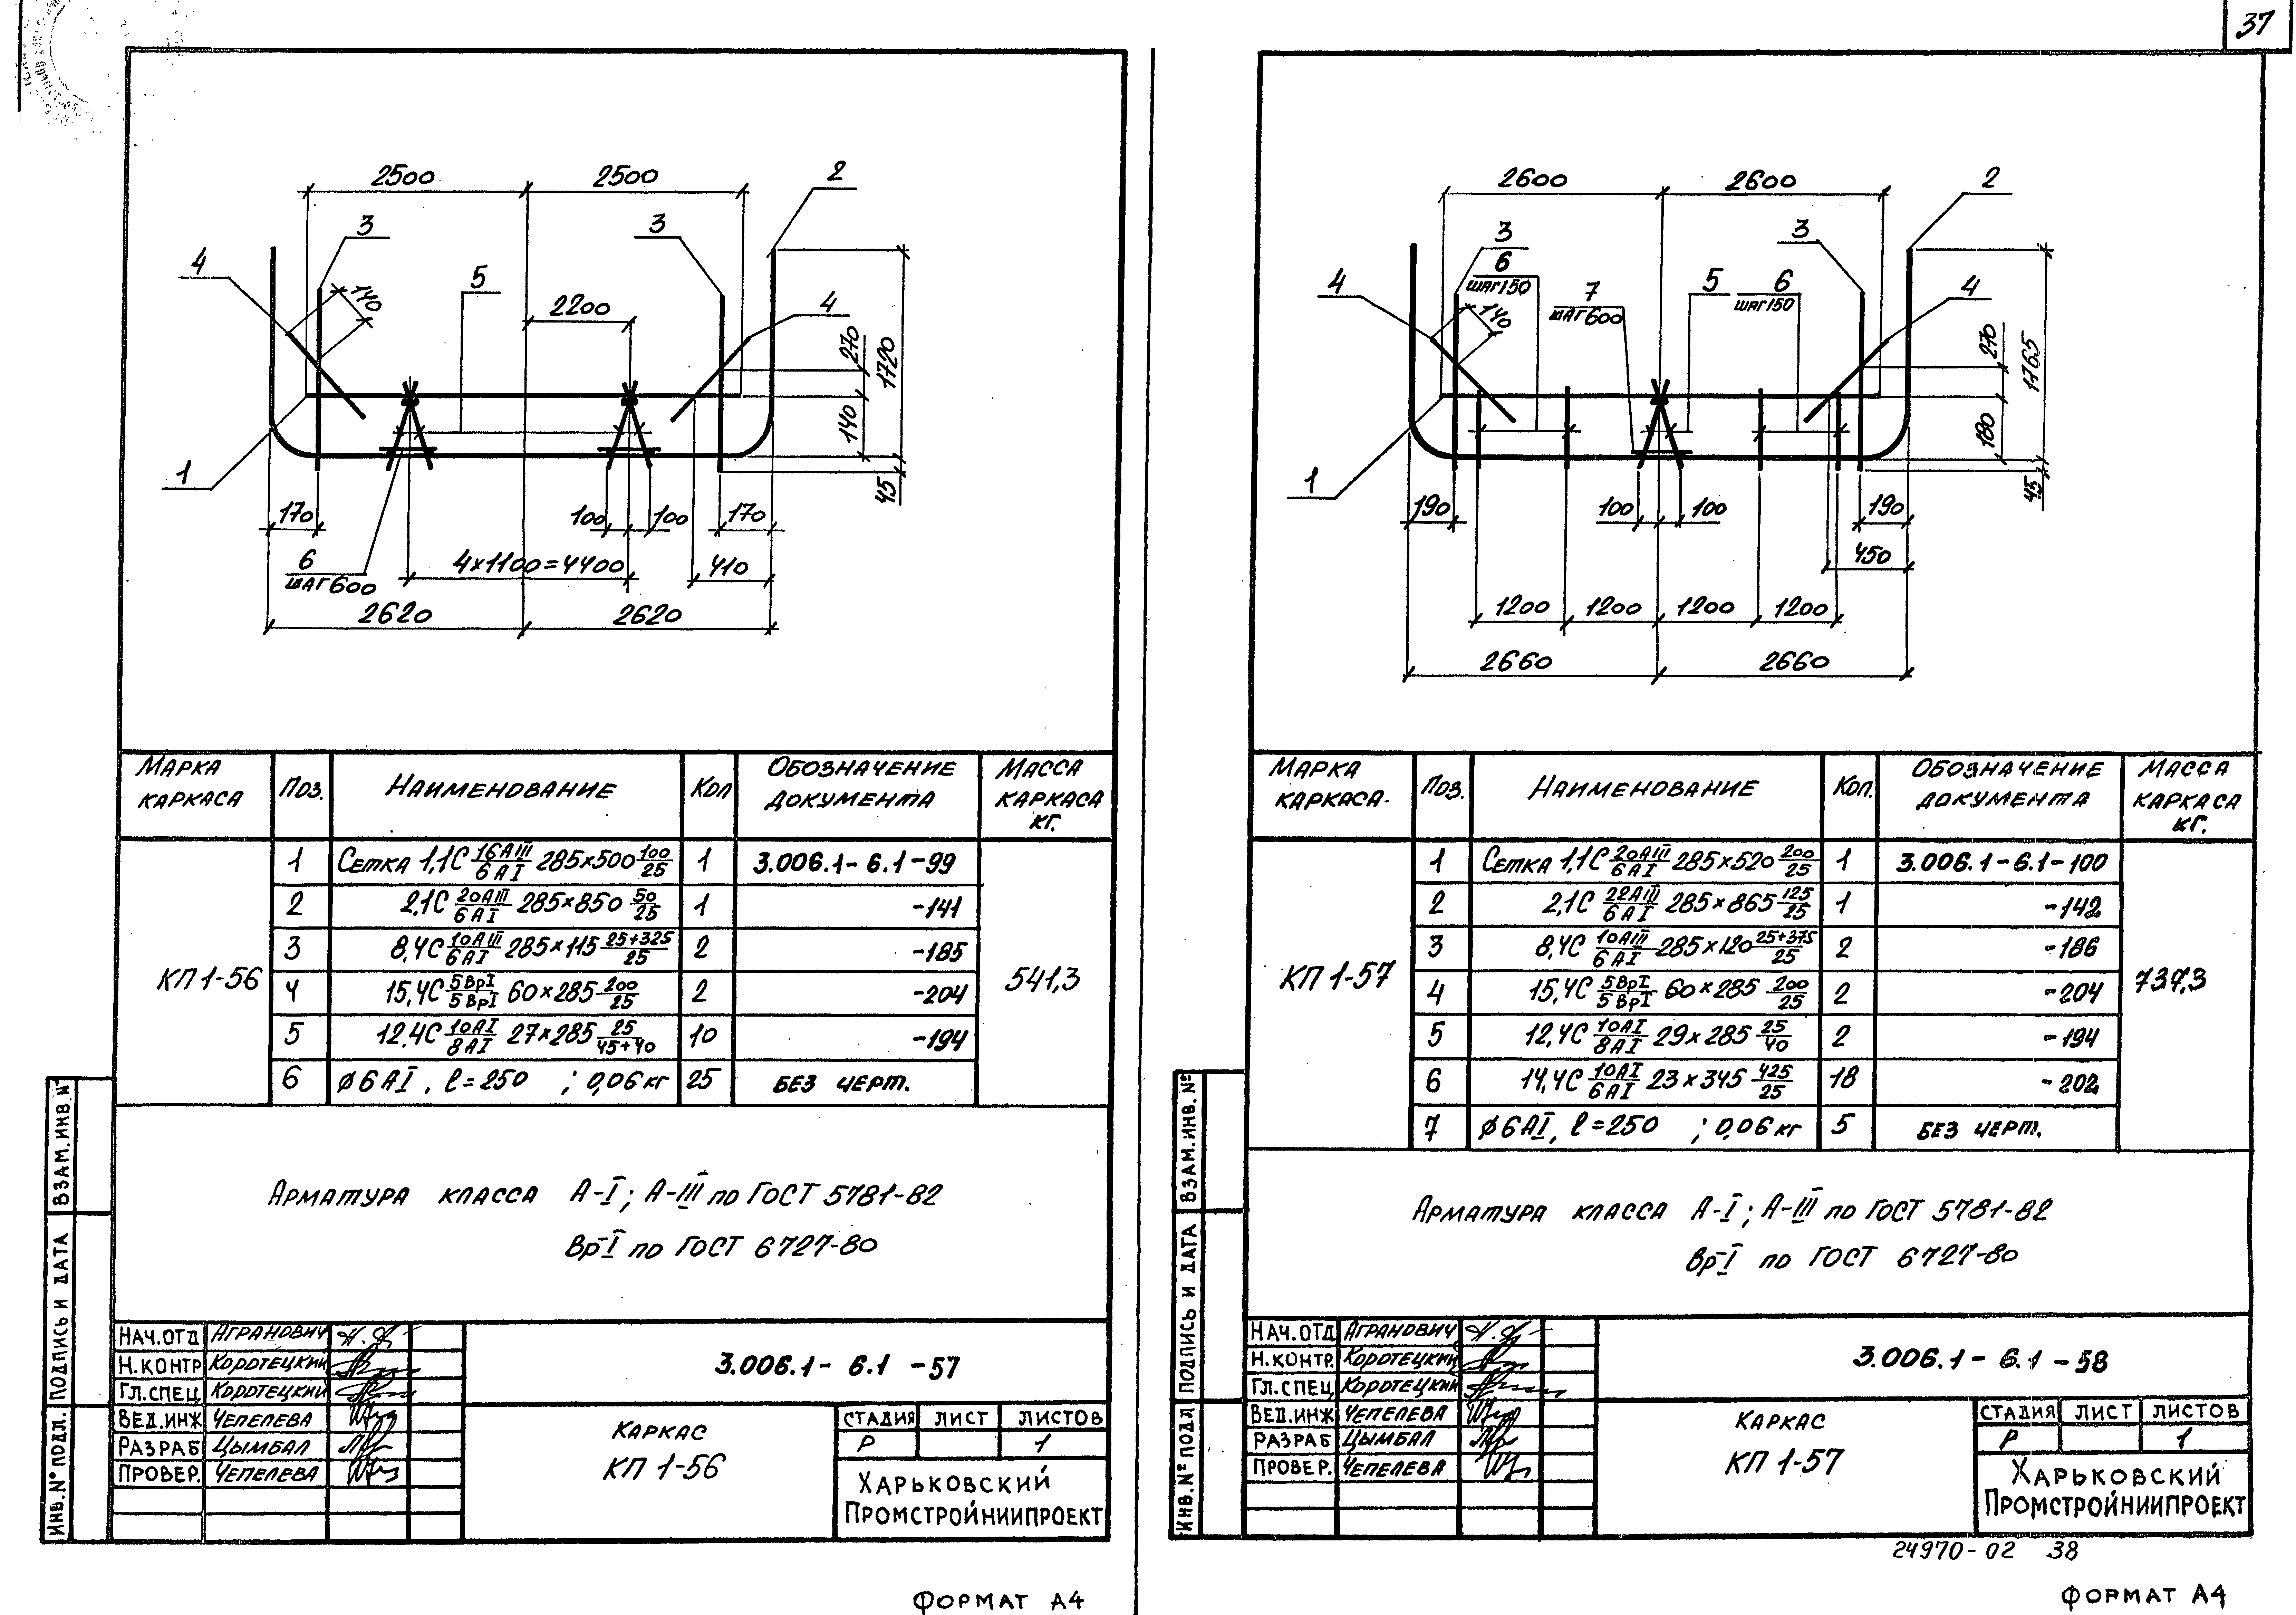 37
2500
2500
2
3
3
4
140
5
2200
4
270
1720
140
45
1
170
100
100
170
6
ШАГ 600
4×1100=4400
410
2620
2620
МАРКА КАРКАСА
ПОЗ.
НАИМЕНОВАНИЕ
КОЛ
ОБОЗНАЧЕНИЕ ДОКУМЕНТА
МАССА КАРКАСА КГ.
КП 1-56
541,3
1 СЕТКА 1,1С 16АIII/6АI 285×500 100/25 1 3.006.1-6.1-99
2 2,1С 20АIII/6АI 285×850 50/25 1 -141
3 8,4С 10АIII/6АI 285×115 25+325/25 2 -185
4 15,4С 5ВрI/5ВрI 60×285 200/25 2 -204
5 12.4С 10АI/8АI 27×285 25/45+40 10 -194
6 ϕ6АI, ℓ=250 ; 0,06 кг 25 БЕЗ ЧЕРТ.
АРМАТУРА КЛАССА А-I; А-III ПО ГОСТ 5781-82
Вр-I ПО ГОСТ 6727-80
ВЗАМ.ИНВ №
ПОДПИСЬ И ДАТА
ИНВ.№ ПОДЛ.
НАЧ.ОТД АГРАНОВИЧ
Н.КОНТР КОРОТЕЦКИЙ
ГЛ.СПЕЦ КОРОТЕЦКИЙ
ВЕД.ИНЖ ЧЕПЕЛЕВА
РАЗРАБ ЦЫМБАЛ
ПРОВЕР. ЧЕПЕЛЕВА
3.006.1- 6.1 -57
КАРКАС
КП 1-56
СТАДИЯ ЛИСТ ЛИСТОВ
Р 1
ХАРЬКОВСКИЙ
ПРОМСТРОЙНИИПРОЕКТ
ФОРМАТ А4
2600
2600
2
3
6
ШАГ150
3
4
140
7
ШАГ600
5
6
ШАГ150
4
270
1765
180
45
1
190
100
100
190
450
1200
1200
1200
1200
2660
2660
МАРКА КАРКАСА.
ПОЗ.
НАИМЕНОВАНИЕ
КОЛ.
ОБОЗНАЧЕНИЕ ДОКУМЕНТА
МАССА КАРКАСА КГ.
КП 1-57
737,3
1 СЕТКА 1,1С 20АIII/6АI 285×520 200/25 1 3.006.1-6.1-100
2 2,1С 22АIII/6АI 285×865 125/25 1 -142
3 8,4С 10АIII/6АI 285×120 25+375/25 2 -186
4 15,4С 5ВрI/5ВрI 60×285 200/25 2 -204
5 12,4С 10АI/8АI 29×285 25/40 2 -194
6 14,4С 10АI/6АI 23×345 425/25 18 -202
7 ϕ6АI, ℓ=250 ; 0,06 кг 5 БЕЗ ЧЕРТ.
АРМАТУРА КЛАССА А-I; А-III ПО ГОСТ 5781-82
Вр-I ПО ГОСТ 6727-80
ВЗАМ.ИНВ.№
ПОДПИСЬ И ДАТА
ИНВ.№ ПОДЛ
НАЧ.ОТД АГРАНОВИЧ
Н.КОНТР. КОРОТЕЦКИЙ
ГЛ.СПЕЦ КОРОТЕЦКИЙ
ВЕД.ИНЖ ЧЕПЕЛЕВА
РАЗРАБ ЦЫМБАЛ
ПРОВЕР. ЧЕПЕЛЕВА
3.006.1- 6.1 -58
КАРКАС
КП 1-57
СТАДИЯ ЛИСТ ЛИСТОВ
Р 1
ХАРЬКОВСКИЙ
ПРОМСТРОЙНИИПРОЕКТ
24970-02 38
ФОРМАТ А4